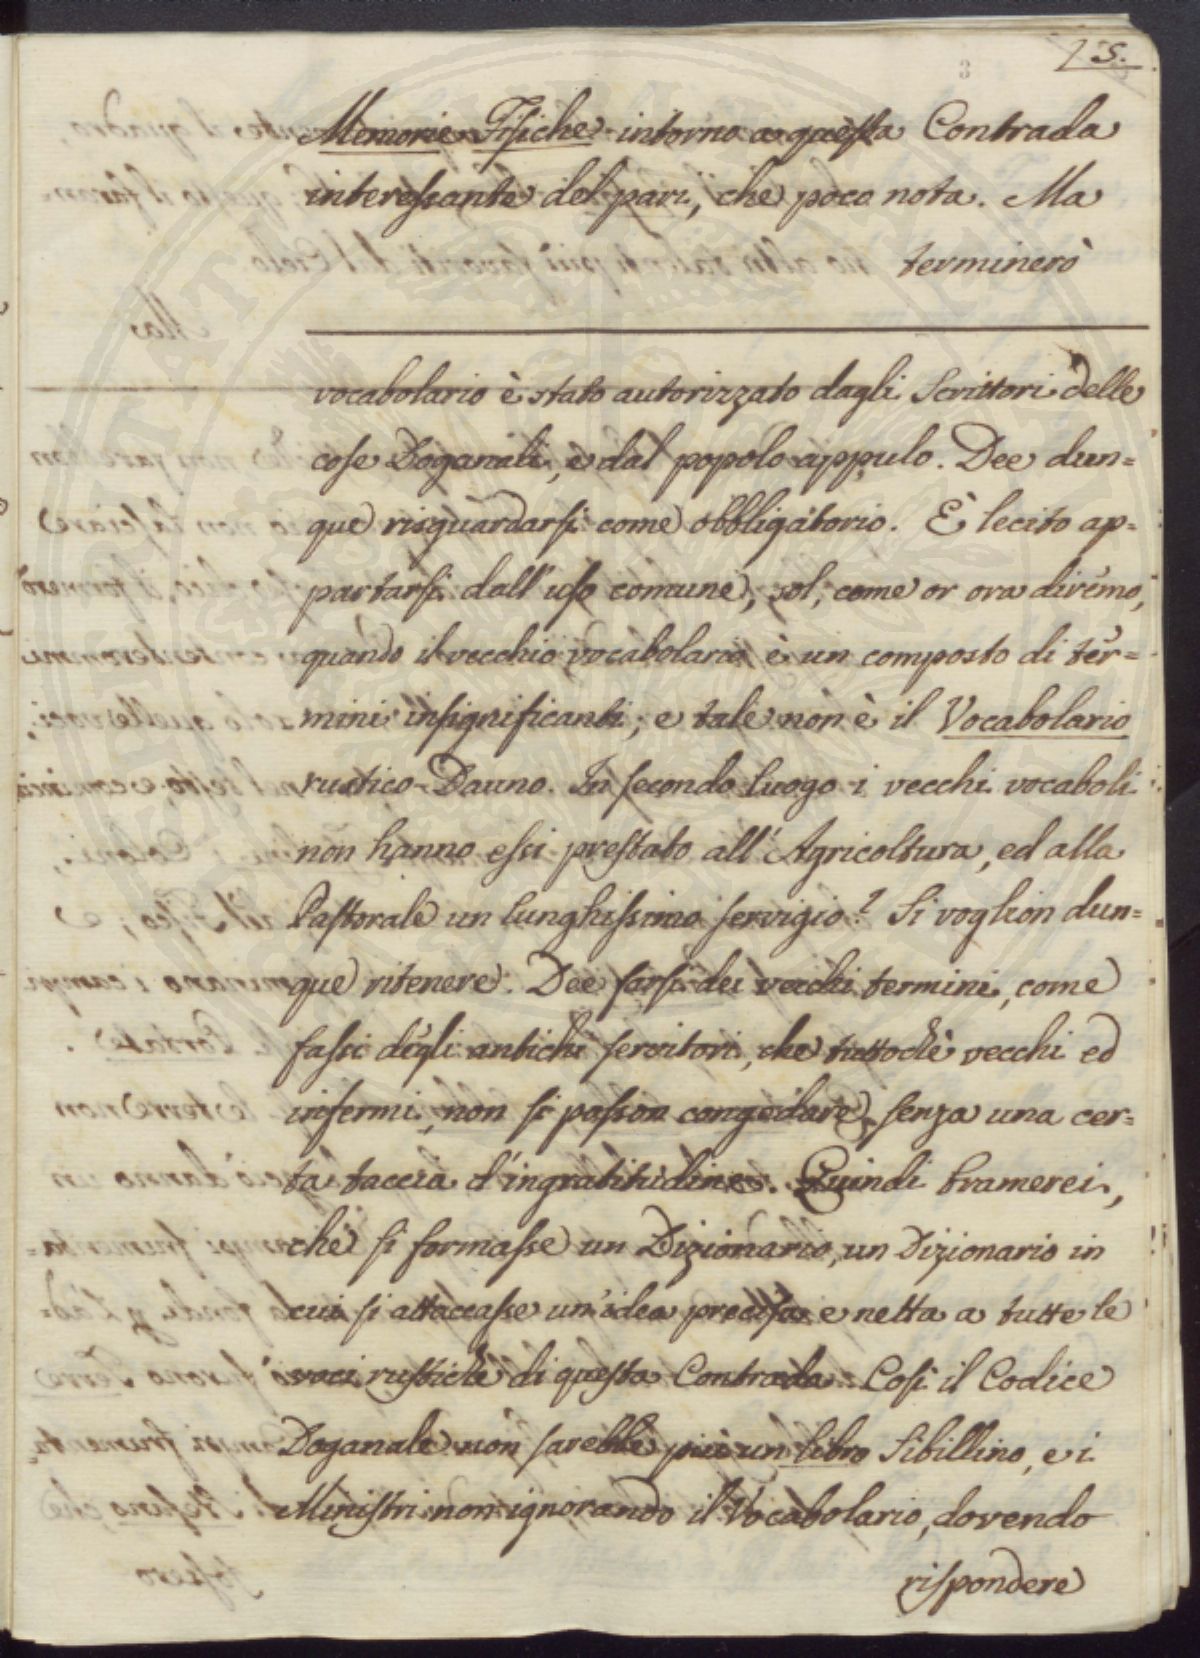 15.
3
Memorie Fisiche intorno a questa Contrada
interessante del pari, che poco nota. Ma
terminerò
vocabolario è stato autorizzato dagli Scrittori delle
cose Doganali, e dal popolo appulo. Dee dun=
que risguardarsi come obbligatorio. È lecito ap=
partarsi dall'uso comune, sol, come or ora diremo,
quando il vecchio vocabolario è un composto di ter=
mini insignificanti; e tale non è il Vocabolario
rustico-Dauno. In secondo luogo i vecchi vocaboli
non hanno essi prestato all'Agricoltura, ed alla
Pastorale un lunghissimo servigio? Si voglion dun=
que ritenere. Dee farsi dei vecchi termini, come
fassi degli antichi servitori, che tuttochè vecchi ed
infermi, non si posson congedare, senza una cer=
ta taccia d'ingratitudine. Quindi bramerei,
che si formasse un Dizionario, un Dizionario in
cui si attaccasse un'idea precisa e netta a tutte le
voci rustiche di questa Contrada. Così il Codice
Doganale non sarebbe più un libro Sibillino, e i
Ministri non ignorando il Vocabolario, dovendo
rispondere